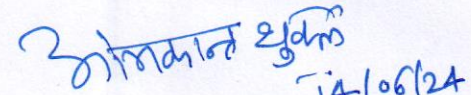 ओमकान्त शुक्ल
14/06/24